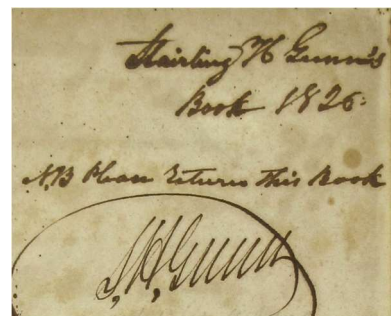 Stairling H Gunn's
Book 1826.
NB Please Return this Book
S,H,Gunn